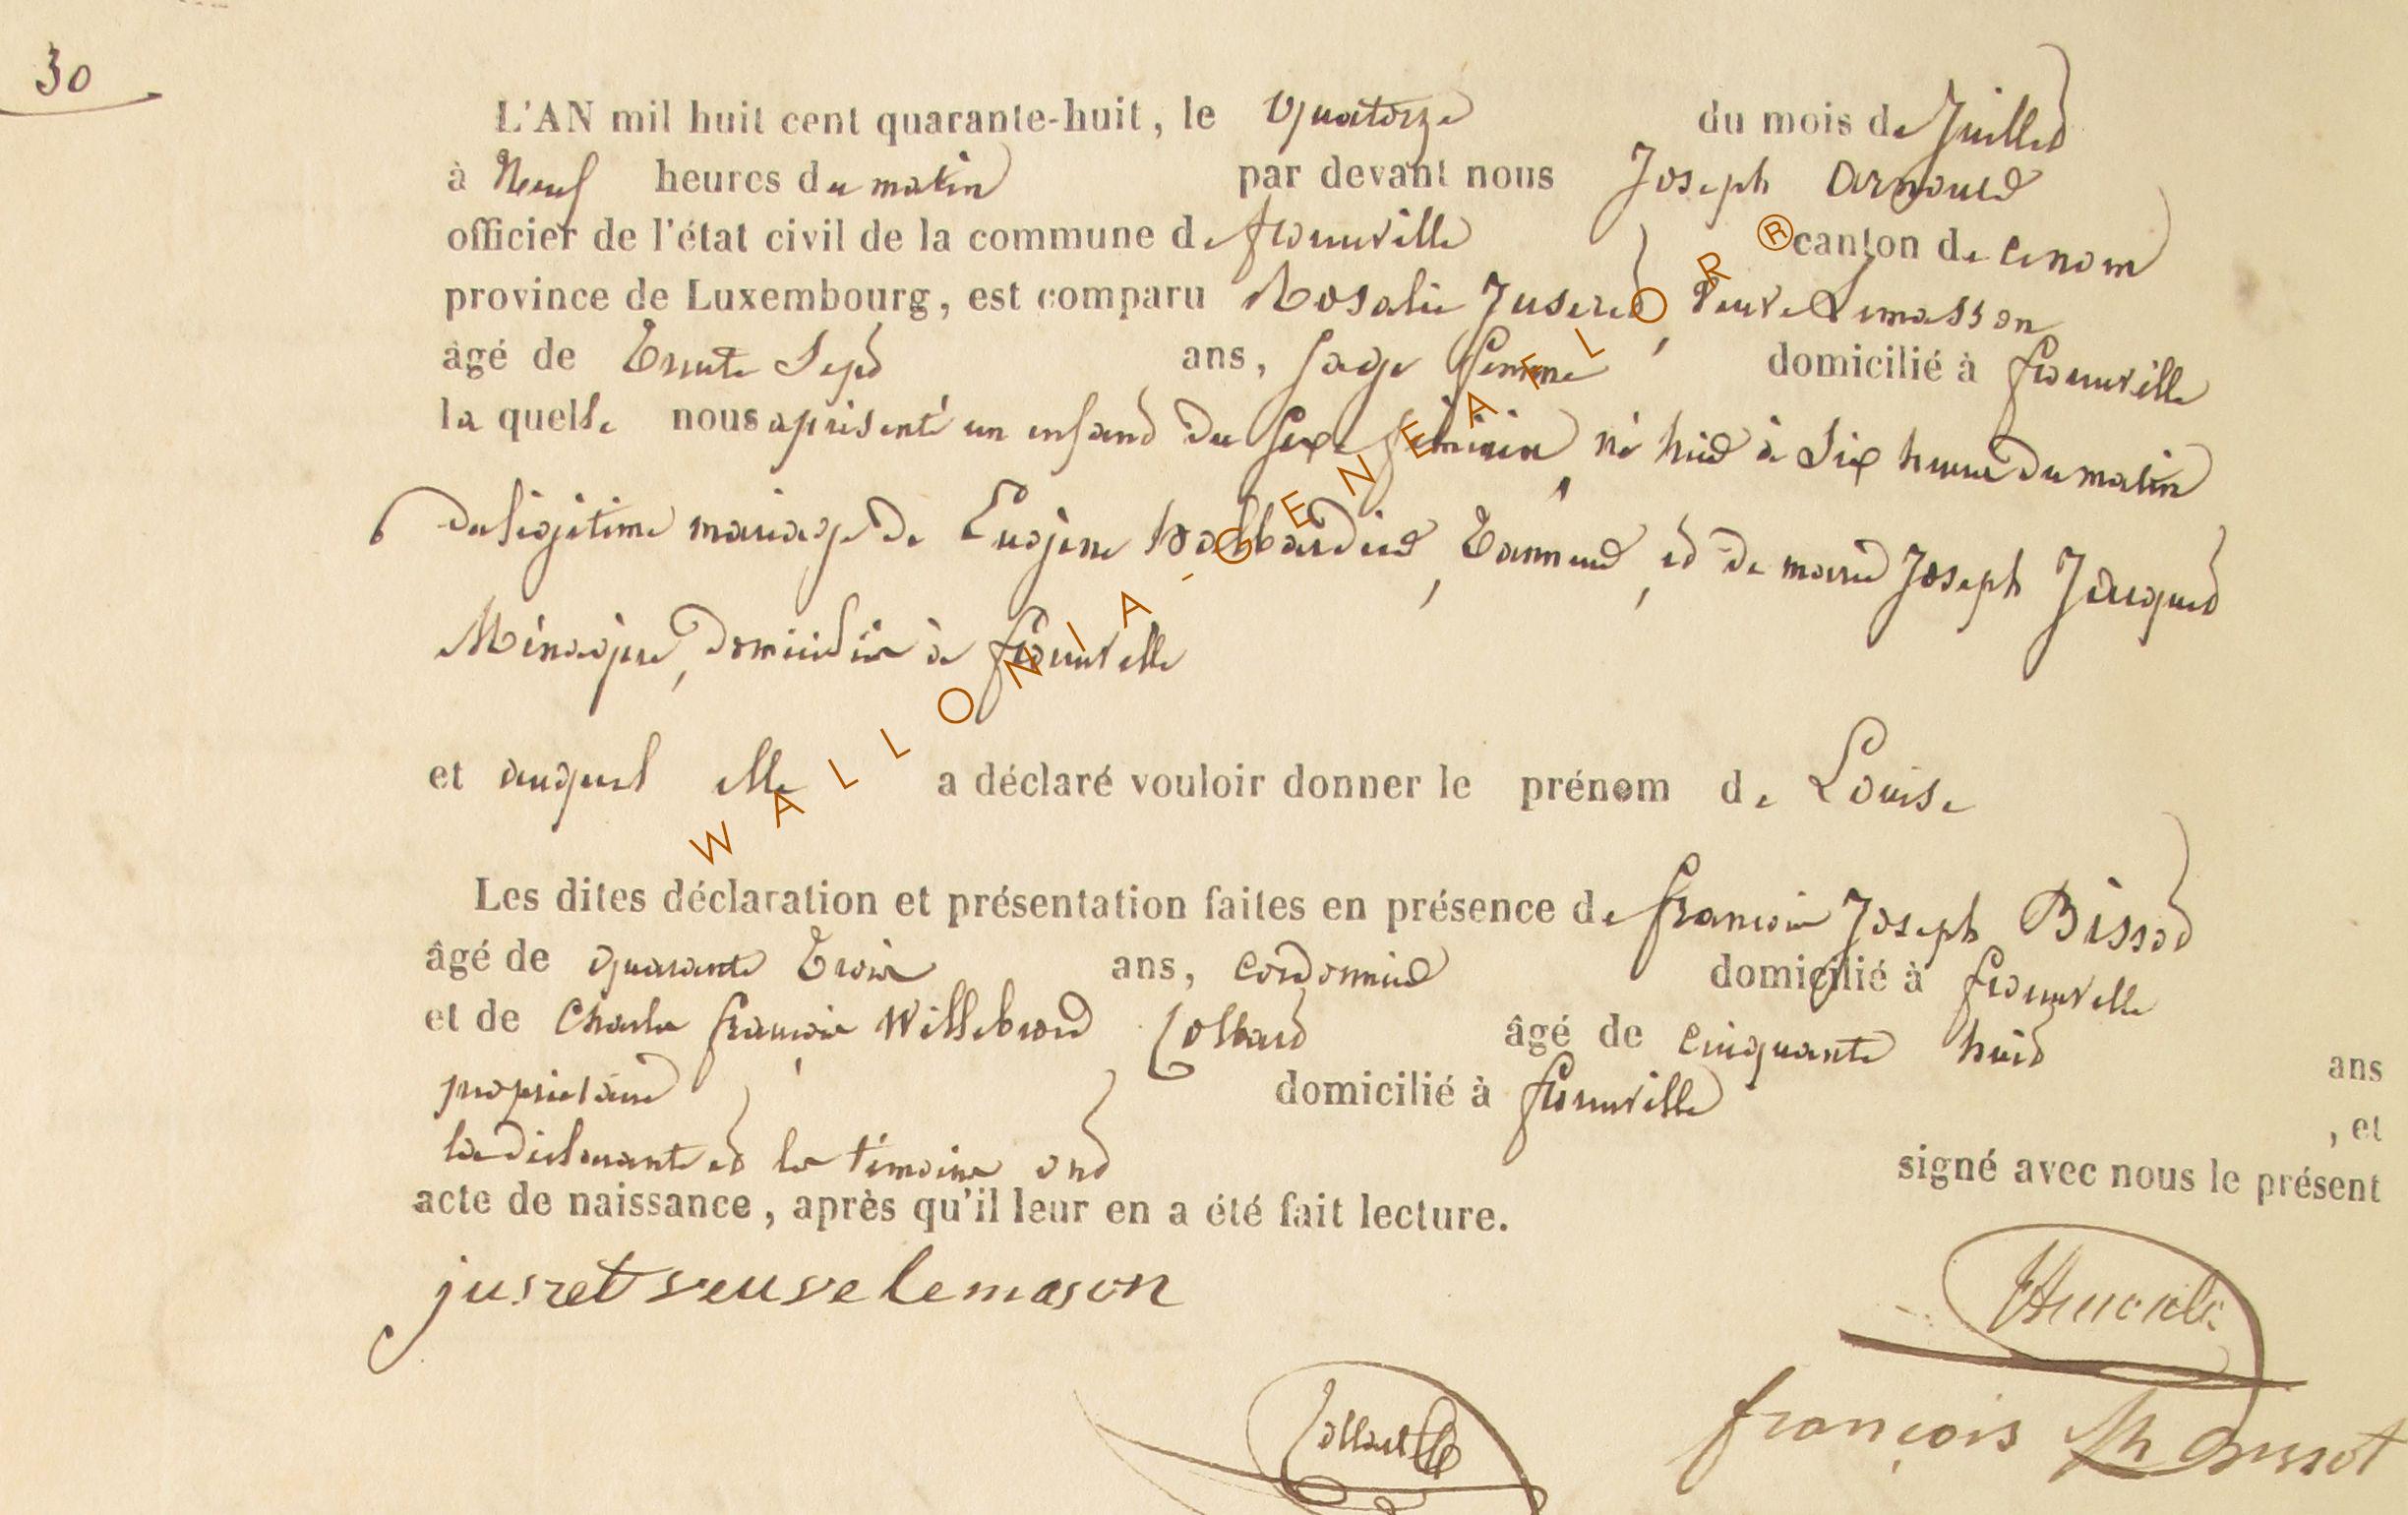 30
L'AN mil huit cent quarante-huit, le Quatorze du mois de Juillet
à Neuf heures du matin par devant nous Joseph Arnould
officier de l'état civil de la commune de florenville canton de ce nom
province de Luxembourg, est comparu Rosalie Juseret, Veuve Lemasson
âgé de Trente Sept ans, sage femme domicilié à florenville
la quelle nous a présenté un enfant du sexe féminin, né huit à Six heures du matin
du légitime mariage de Eugène hallbardier, Tanneur, et de marie Joseph Jacques
Ménagère, domiciliés à florenville
et auquel elle a déclaré vouloir donner le prénom de Louise
Les dites déclaration et présentation faites en présence de françois Joseph Bissot
âgé de quarante Trois ans, cordonnier domicilié à florenville
et de Charles françois Willebrord Collard âgé de cinquante huit ans
propriétaire domicilié à florenville , et
la déclarante et les témoins ont signé avec nous le présent
acte de naissance, après qu'il leur en a été fait lecture.
jusret veuve lemason
françois
WALLONIA-GENEAFLOR ®